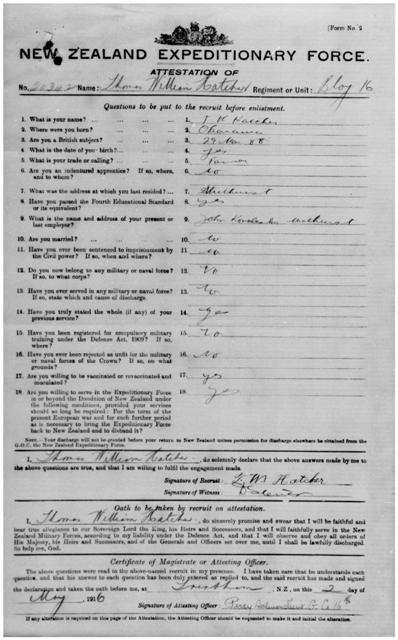 [Form No. 2
NEW ZEALAND EXPEDITIONARY FORCE.
ATTESTATION OF
No. Name: Thomas William Hatcher Regiment or Unit: 16
Questions to be put to the recruit before enlistment.
1. What is your name? ... ... ... 1. T W Hatcher
2. Where were you born? ... ... ... 2.
3. Are you a British subject? ... ... 3. 29 88
4. What is the date of your birth? ... ... 4. yes
5. What is your trade or calling? ... ... 5.
6. Are you an indentured apprentice? If so, where, and to whom? 6. No
7. What was the address at which you last resided? ... 7. Midhurst
8. Have you passed the Fourth Educational Standard or its equivalent? 8. yes
9. What is the name and address of your present or last employer? 9. John Midhurst
10. Are you married? ... ... ... 10. No
11. Have you ever been sentenced to imprisonment by the Civil power? If so, when and where? 11. No
12. Do you now belong to any military or naval force? If so, to what corps? 12. No
13. Have you ever served in any military or naval force? If so, state which and cause of discharge. 13. No
14. Have you truly stated the whole (if any) of your previous service? 14. yes
15. Have you been registered for compulsory military training under the Defence Act, 1909? If so, where? 15. No
16. Have you ever been rejected as unfit for the military or naval forces of the Crown? If so, on what grounds? 16. No
17. Are you willing to be vaccinated or revaccinated and inoculated? 17. yes
18. Are you willing to serve in the Expeditionary Force in or beyond the Dominion of New Zealand under the following conditions, provided your services should so long be required: For the term of the present European war and for such further period as is necessary to bring the Expeditionary Force back to New Zealand and to disband it? 18. yes
NOTE.—Your discharge will not be granted before your return to New Zealand unless permission for discharge elsewhere be obtained from the G.O.C. the New Zealand Expeditionary Force.
I, Thomas William Hatcher, do solemnly declare that the above answers made by me to
the above questions are true, and that I am willing to fulfil the engagement made.
Signature of Recruit: T W Hatcher
Signature of Witness:
Oath to be taken by recruit on attestation.
I, Thomas William Hatcher, do sincerely promise and swear that I will be faithful and
bear true allegiance to our Sovereign Lord the King, his Heirs and Successors, and that I will faithfully serve in the
New Zealand Military Forces, according to my liability under the Defence Act, and that I will observe and obey all orders of
His Majesty, his Heirs and Successors, and of the Generals and Officers set over me, until I shall be lawfully discharged.
So help me, God.
Certificate of Magistrate or Attesting Officer.
The above questions were read to the above-named recruit in my presence. I have taken care that he understands each
question, and that his answer to each question has been duly entered as replied to, and the said recruit has made and signed
the declaration and taken the oath before me, at Trentham, N.Z., on this 2 day of
May 1916
Signature of Attesting Officer
If any alteration is required on this page of the Attestation, the Attesting Officer should be requested to make it and initial the alteration.